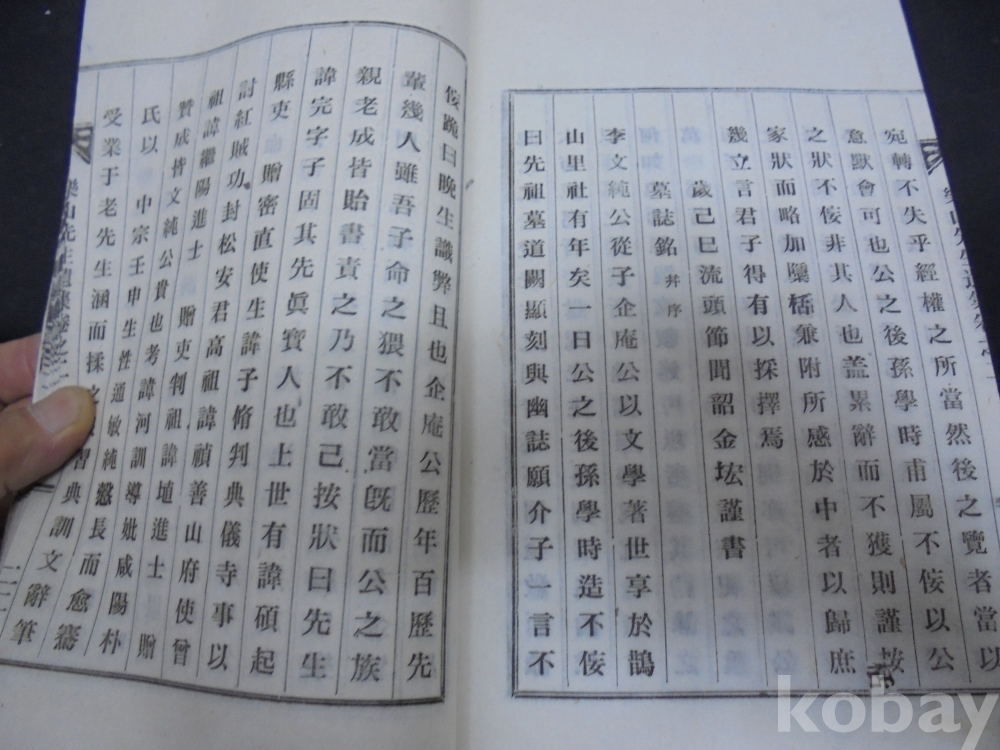 宛轉不失乎經權之所當然後之覽者當以
意默會可也公之後孫學時甫屬不侫以公
之狀不侫非其人也盖累辭而不獲則謹按
家狀而略加櫽栝兼附所感於中者以歸庶
幾立言君子得有以採擇焉
歲己巳流頭節聞韶金坹謹書
墓誌銘 幷序
李文純公從子企庵公以文學著世享於鵲
山里社有年矣一日公之後孫學時造不侫
曰先祖墓道闕顯刻與幽誌願介子一言不
侫跪曰晚生識弊且也企庵公歷年百歷先
輩幾人雖吾子命之猥不敢當旣而公之族
親老成皆貽書責之乃不敢已按狀曰先生
諱完字子固其先眞寶人也上世有諱碩起
縣吏 贈密直使生諱子脩判典儀寺事以
討紅賊功封松安君高祖諱禎善山府使曾
祖諱繼陽進士 贈吏判祖諱埴進士 贈
贊成皆文純公貴也考諱河訓導妣咸陽朴
氏以 中宗壬申生性通敏純慤長而愈騫
受業于老先生涵而揉之 習典訓文辭筆
樂山先生遺集卷之二 二二
kobay